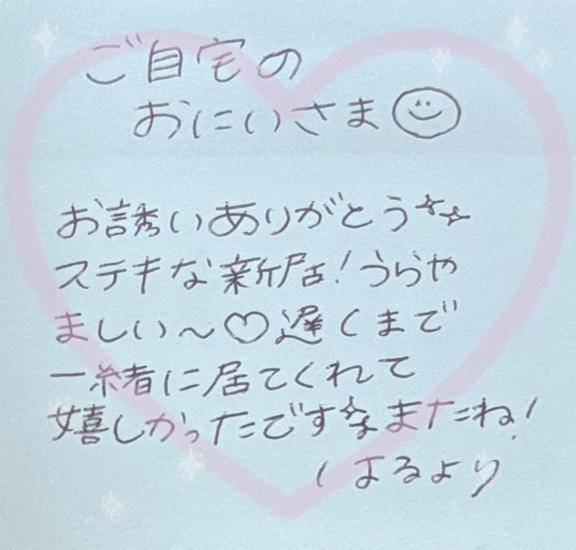 ご自宅の
おにいさま
お誘いありがとう
ステキな新居！うらや
ましい〜♡遅くまで
一緒に居てくれて
嬉しかったです☆またね！
はるより